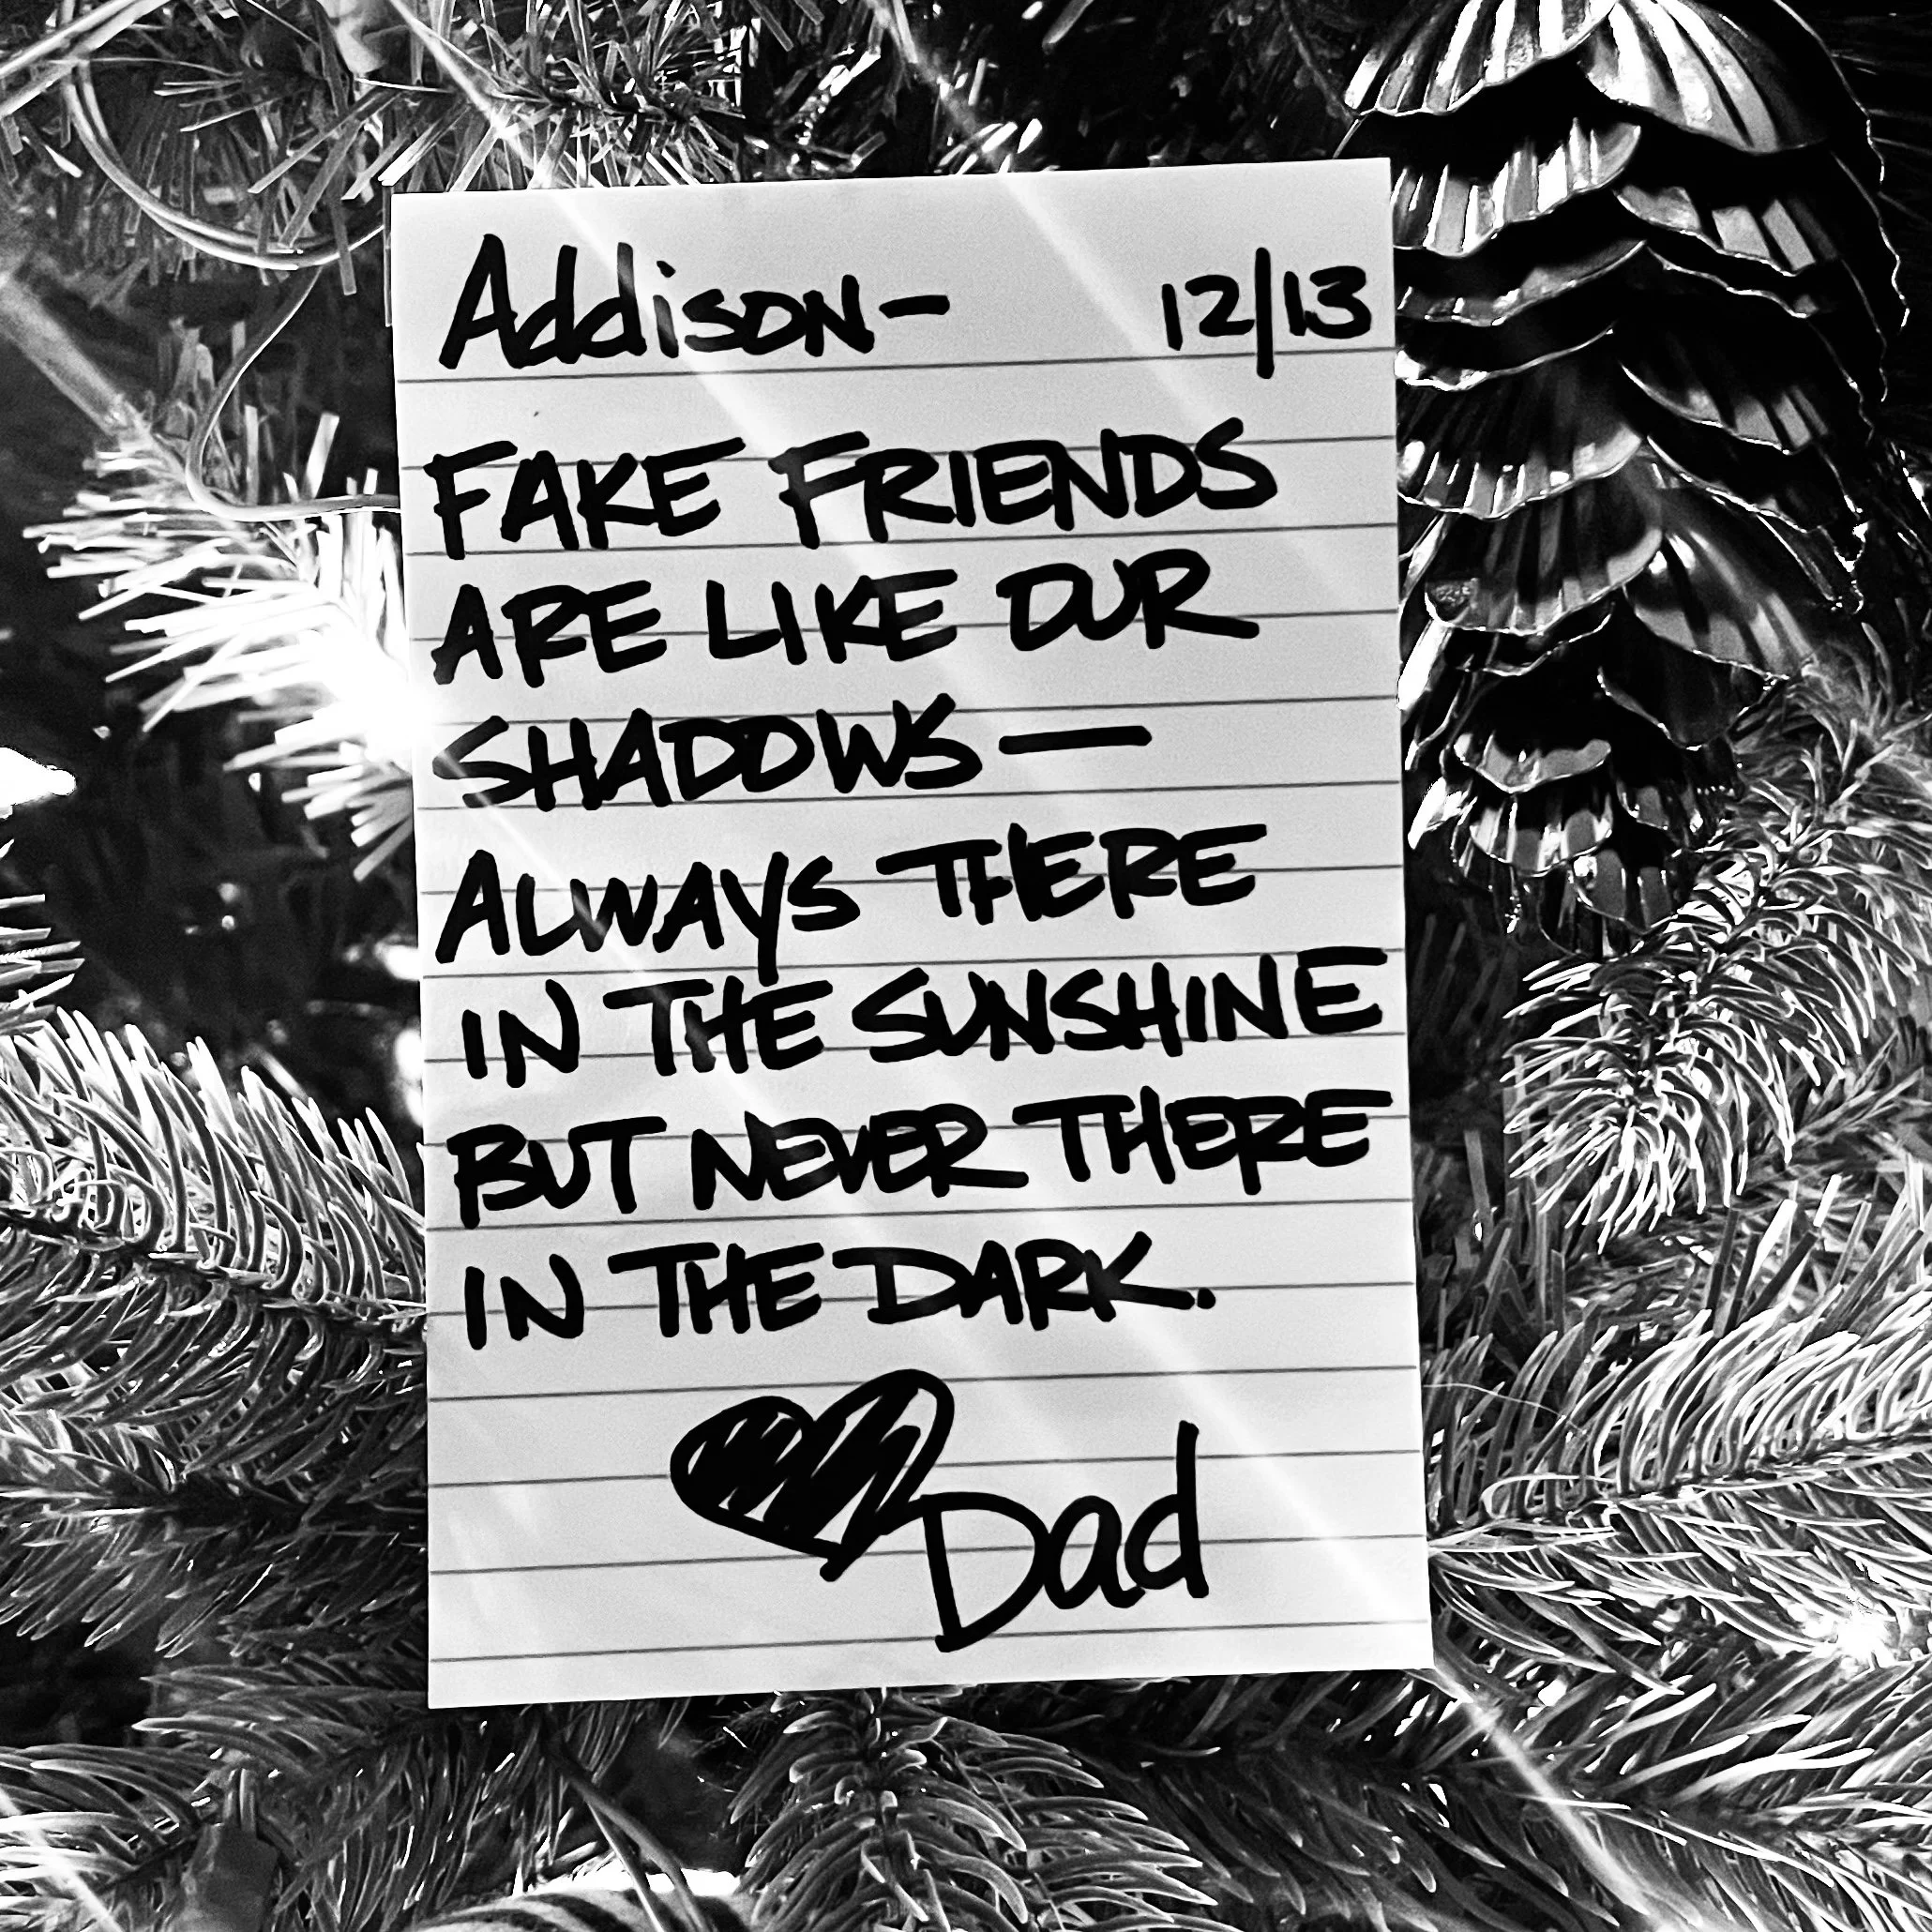 Addison- 12/13
FAKE FRIENDS
ARE LIKE OUR
SHADOWS—
ALWAYS THERE
IN THE SUNSHINE
BUT NEVER THERE
IN THE DARK.
Dad